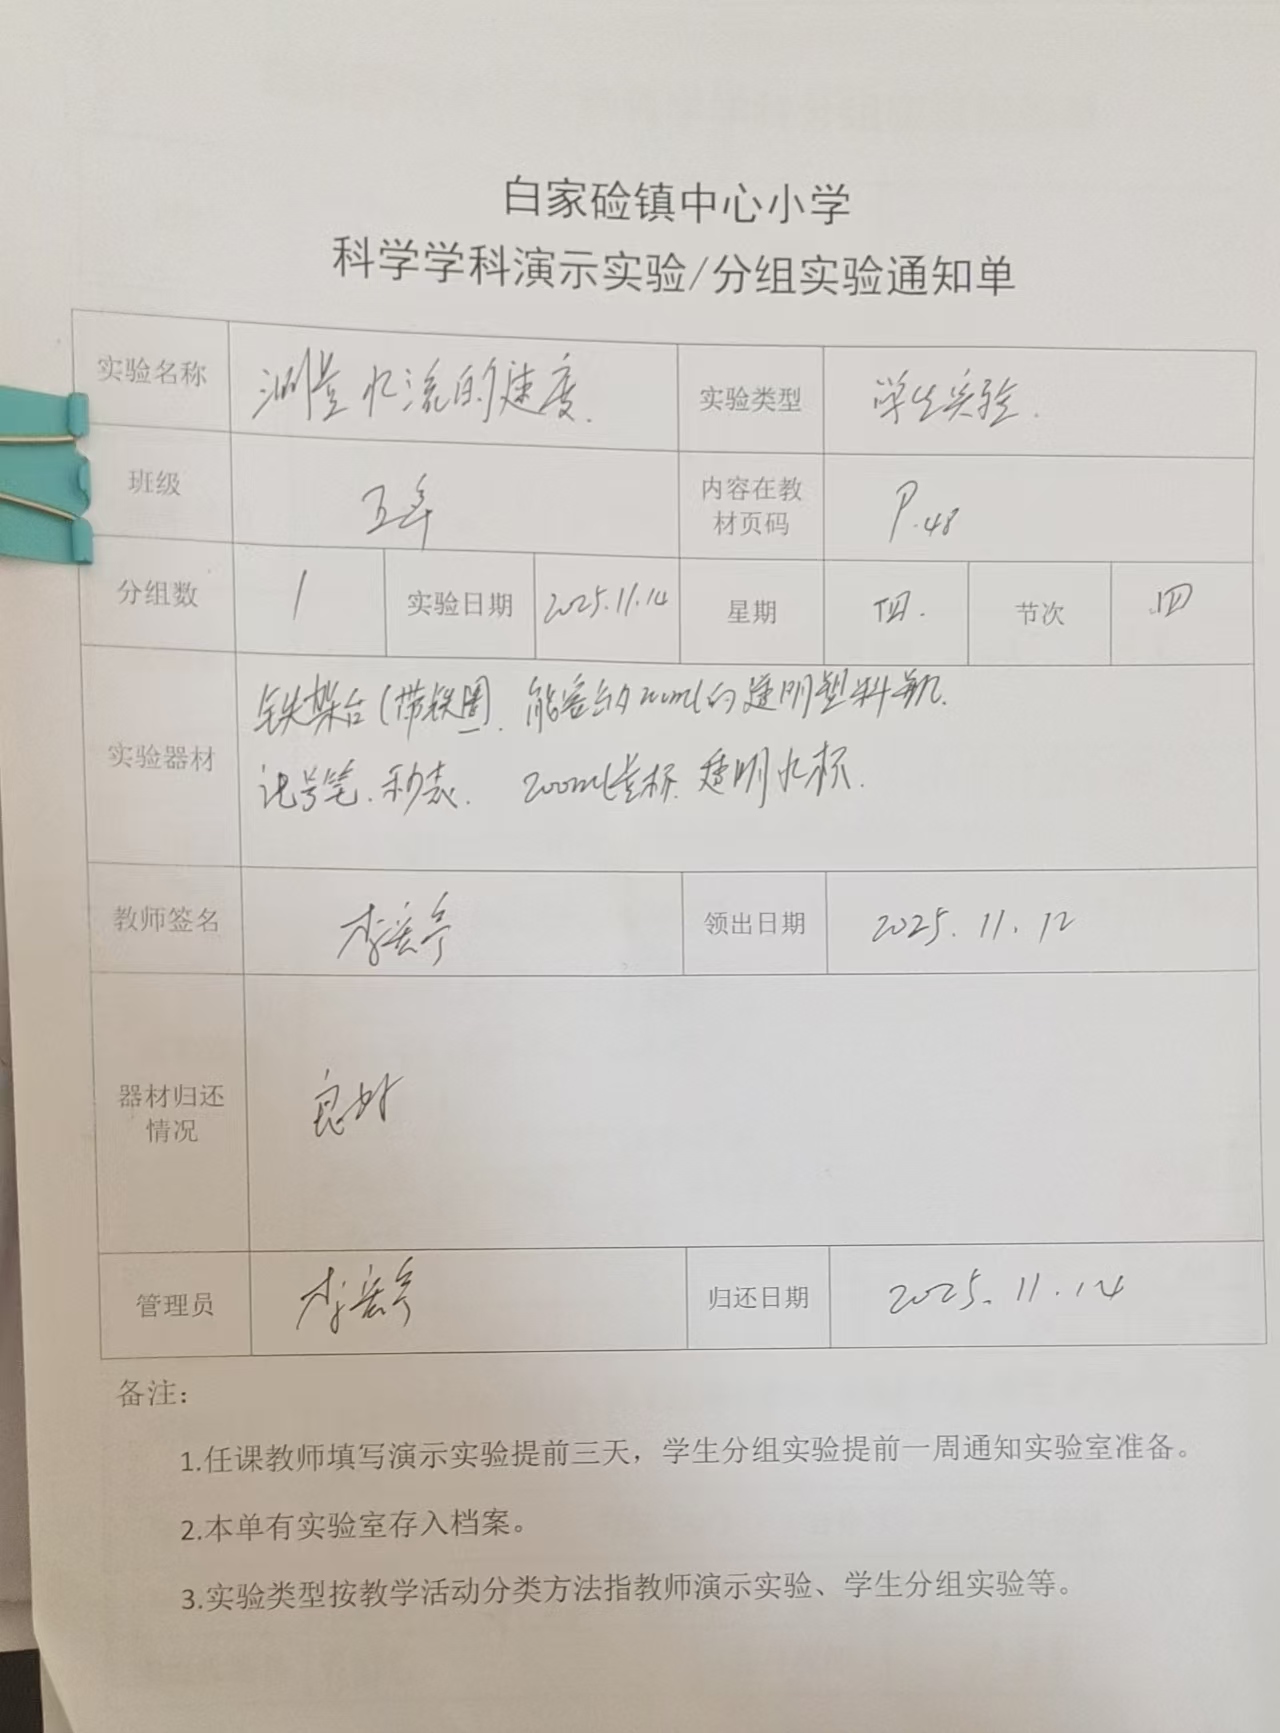 白家硷镇中心小学
科学学科演示实验/分组实验通知单
实验名称 测量水流的速度. 实验类型 学生实验.
班级 五年 内容在教材页码 P.48
分组数 1 实验日期 2025.11.14 星期 四. 节次 四
实验器材 铁架台(带铁圈). 能容纳 的透明塑料瓶.
记号笔.秒表. 200ml量杯.透明水杯.
教师签名 李宏亭 领出日期 2025.11.12
器材归还情况 良好
管理员 李宏亭 归还日期 2025.11.14
备注:
1.任课教师填写演示实验提前三天，学生分组实验提前一周通知实验室准备。
2.本单有实验室存入档案。
3.实验类型按教学活动分类方法指教师演示实验、学生分组实验等。